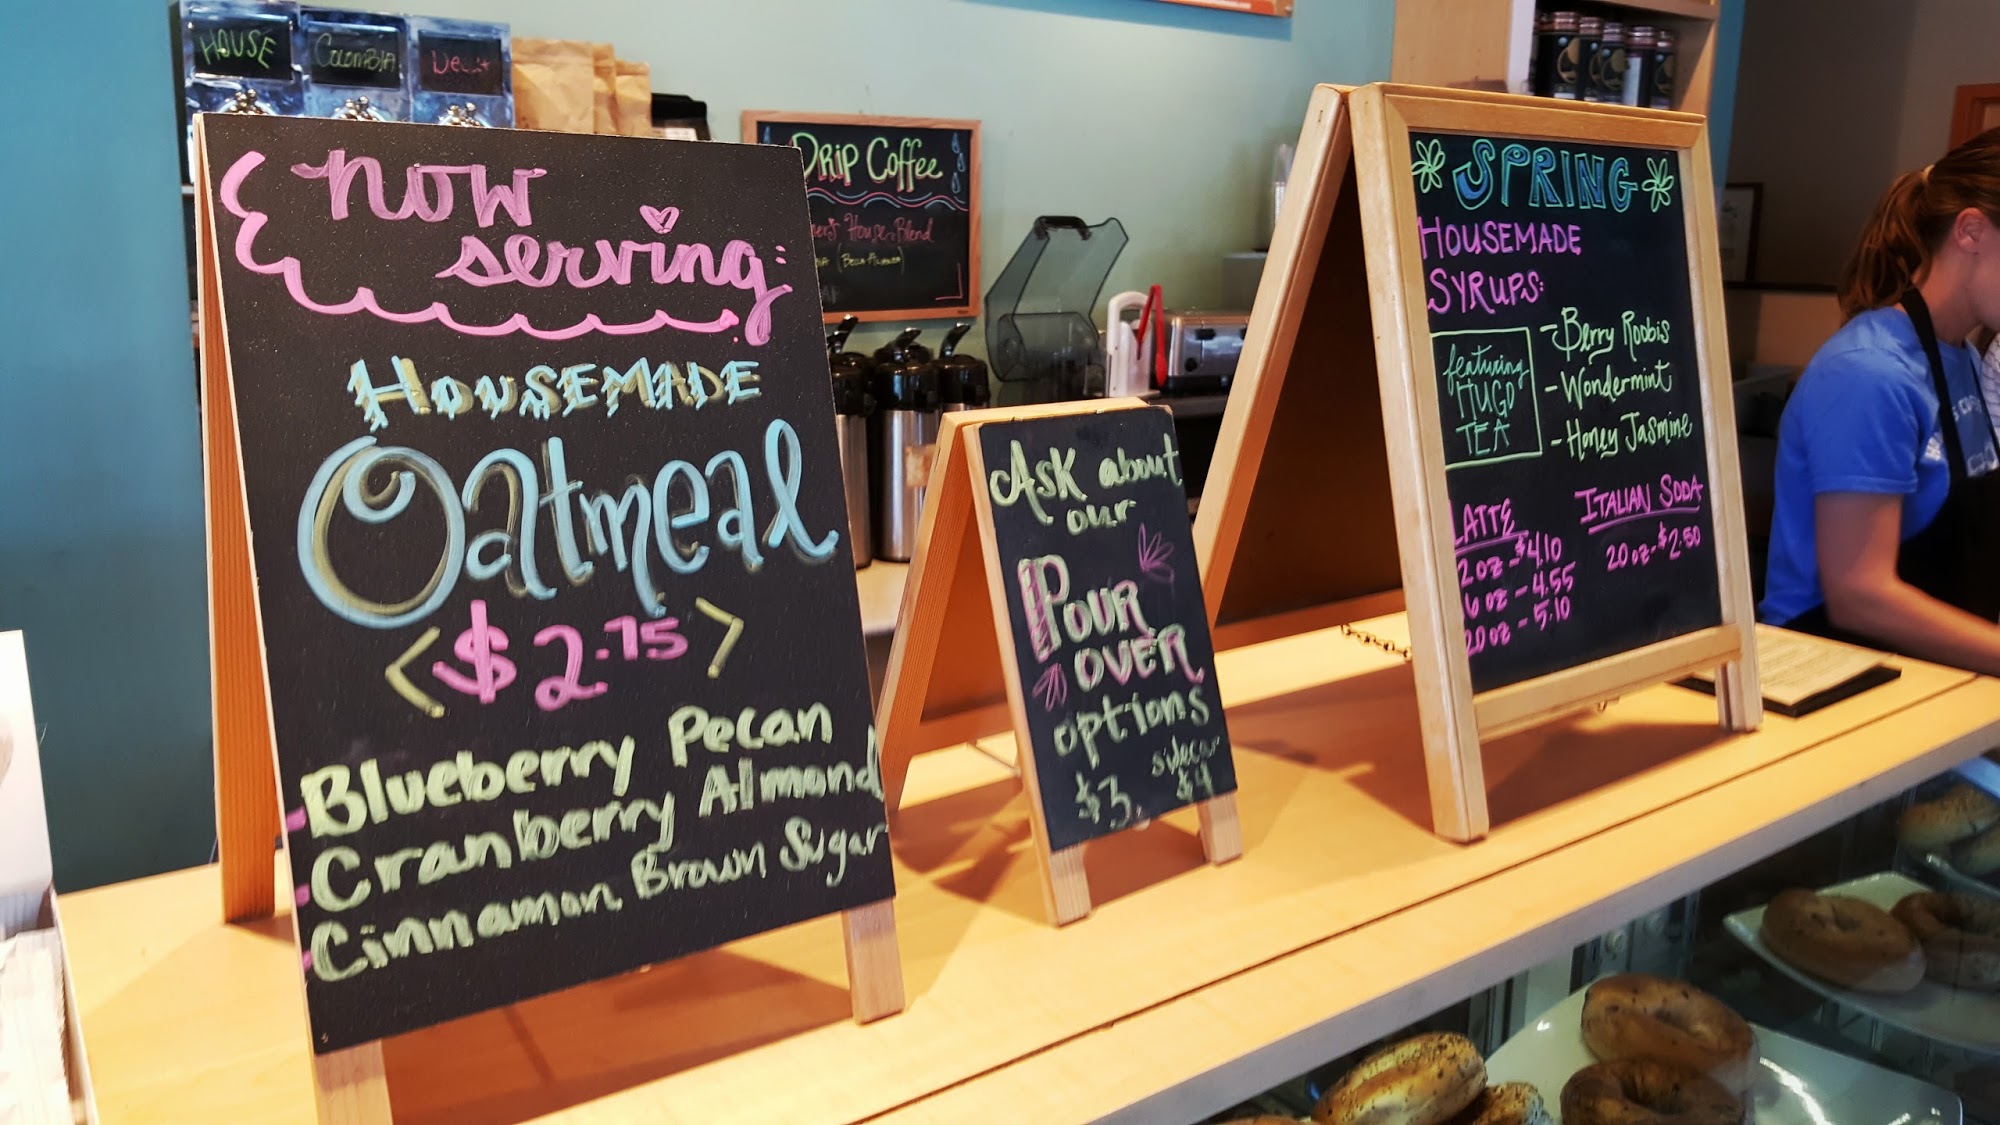 HOUSE
COLOMBIA
Decaf
now
serving:
HOUSEMADE
Oatmeal
<$2.75>
- Blueberry Pecan
- Cranberry Almond
- Cinnamon Brown Sugar
DRIP COFFEE
House Blend
Ask about
our
POUR
OVER
options
sidecar
$3. $4
SPRING
HOUSEMADE
SYRUPS:
featuring
HUGO
TEA
- Berry Roobis
- Wondermint
- Honey Jasmine
LATTE
2oz - $4.10
6oz - 4.55
20oz - 5.10
ITALIAN SODA
20oz - $2.50